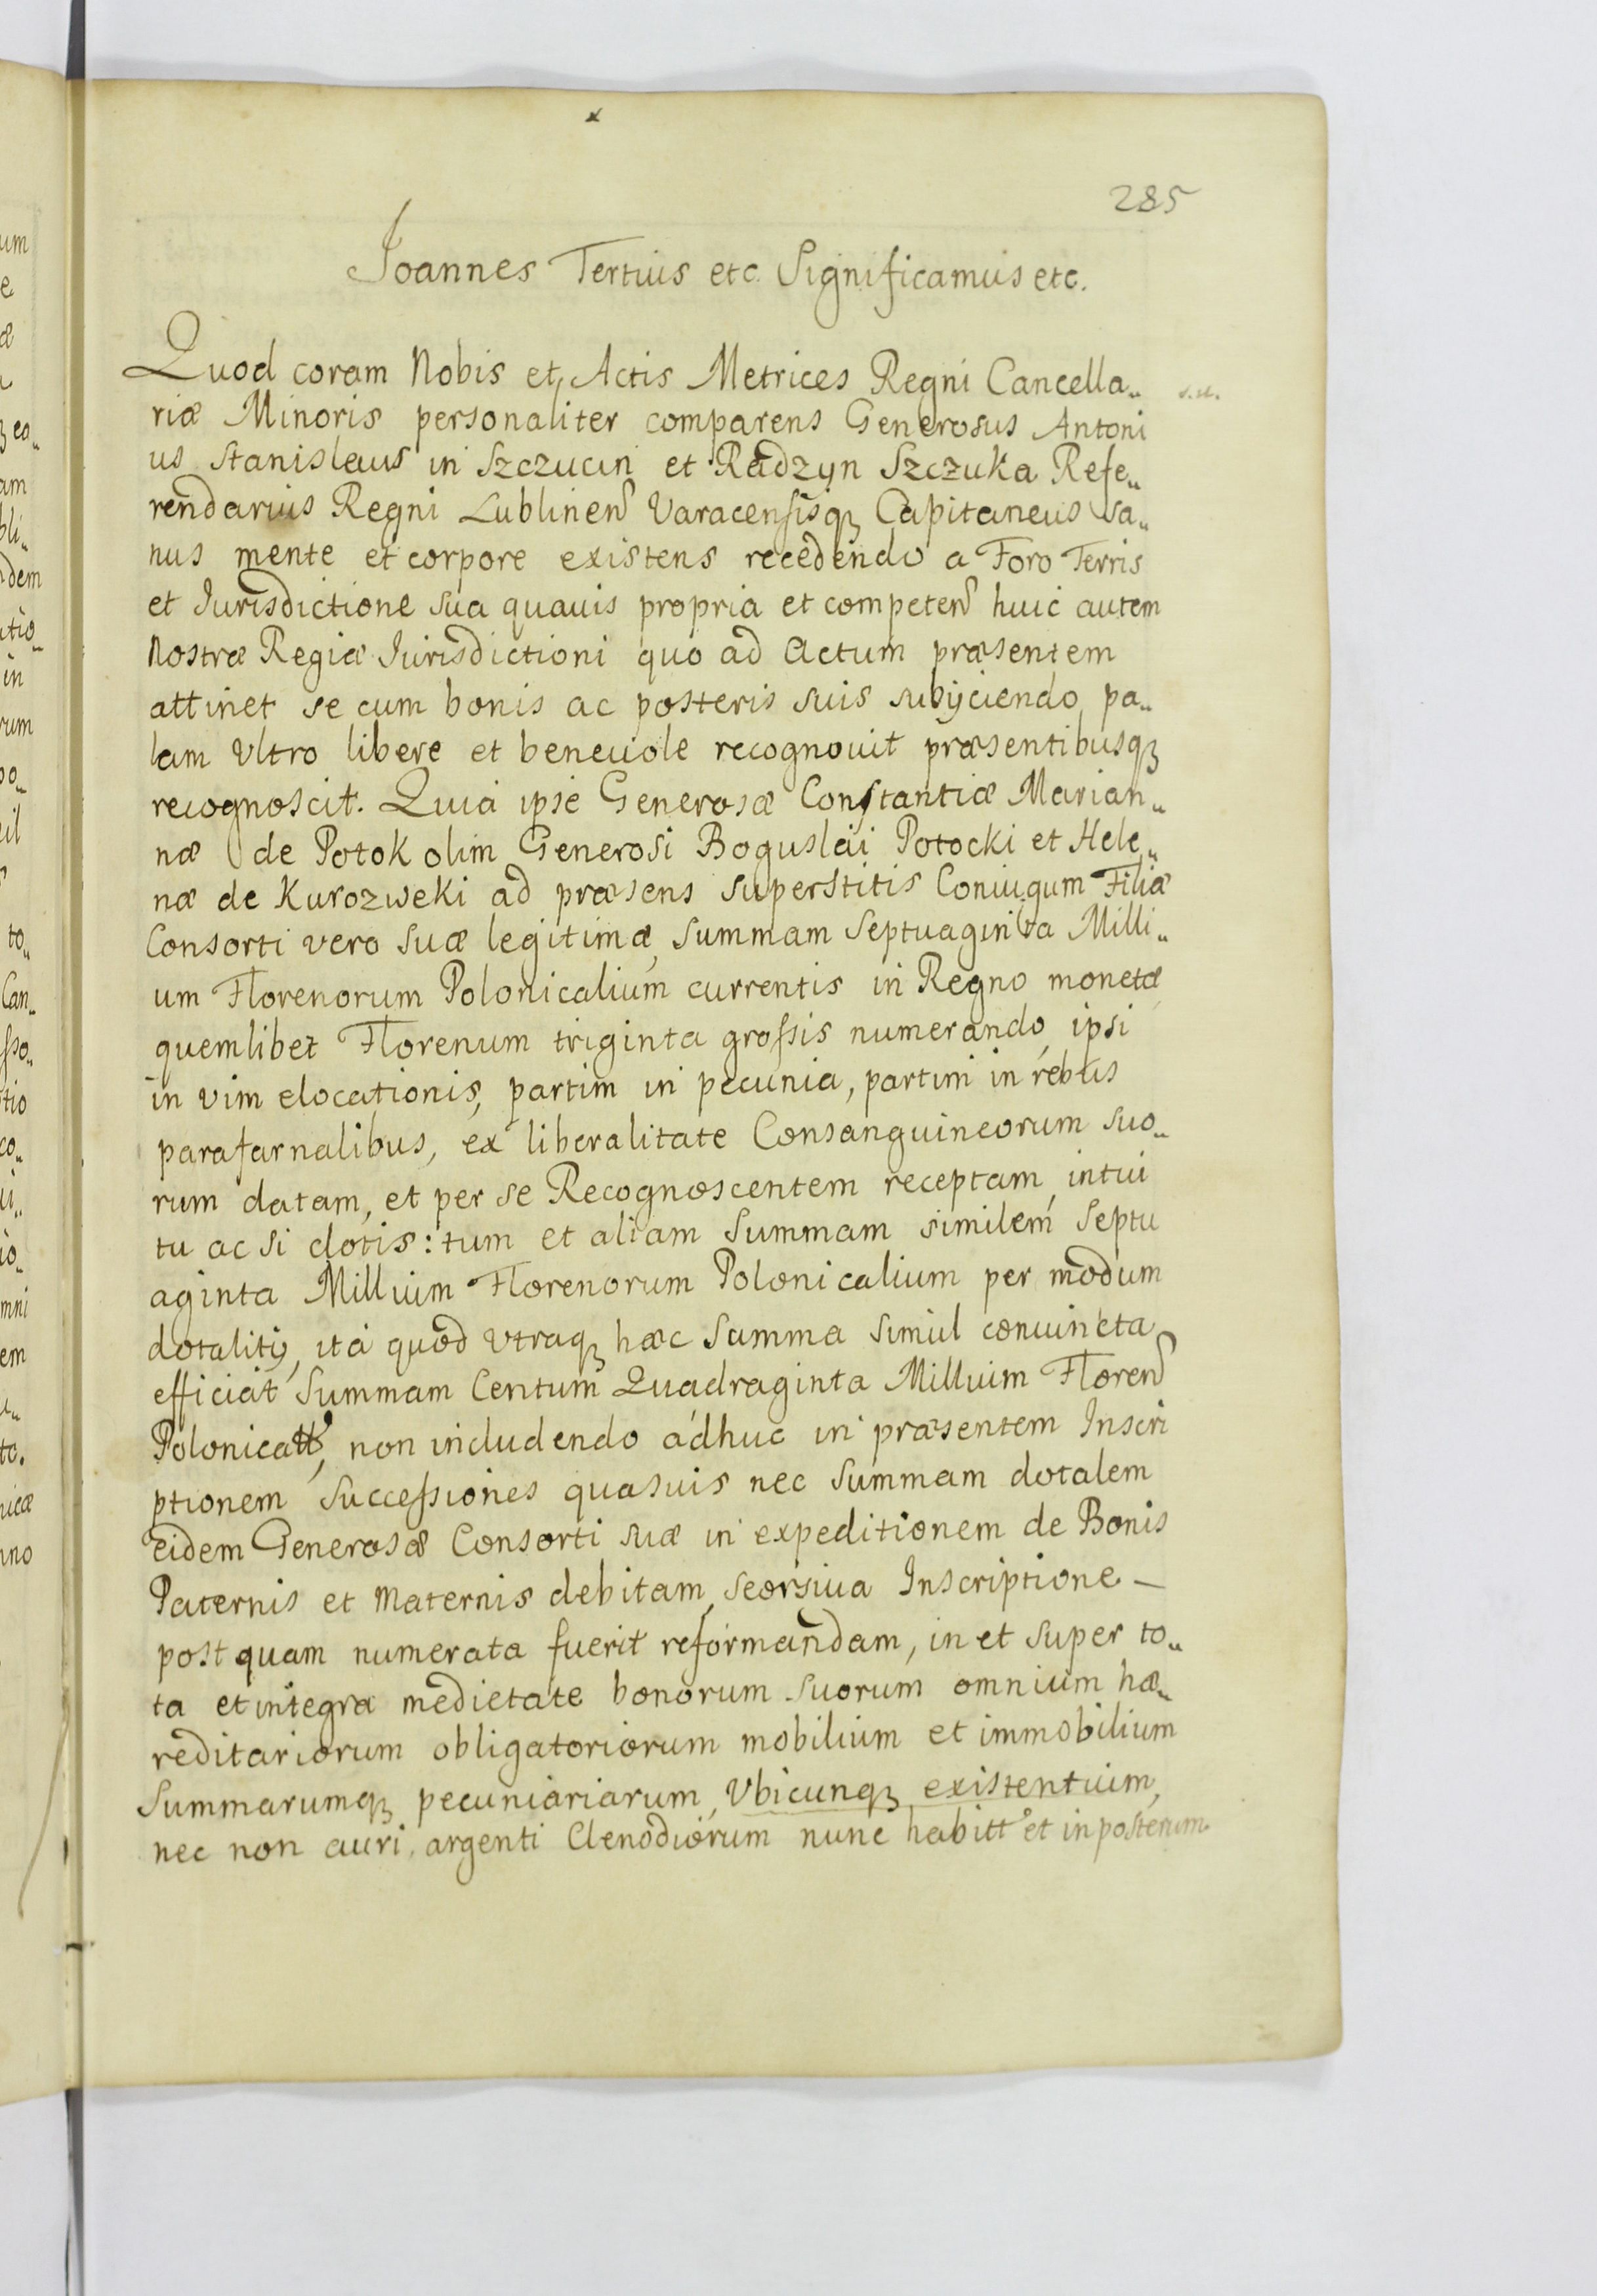 285
Joannes Tertius etc. Significamus etc.
Quod coram Nobis et Actis Metrices Regni Cancella„
riæ Minoris personaliter comparens Generosus Antoni
us Stanislaus in Szczucin et Radzyn Szczuka Refe„
rendarius Regni Lublinen̄ Varacensisq₃ Capitaneus sa„
nus mente et corpore existens recedendo a Foro Terris
et Jurisdictione sua quavis propria et competen̄ huic autem
Nostræ Regiæ Jurisdictioni quo ad Actum præsentem
attinet se cum bonis ac posteris suis subijciendo, pa„
lam Vltro libere et beneuole recognouit præsentibusq₃
recognoscit. Quia ipse Generosæ Constantiæ Marian„
næ de Potok olim Generosi Boguslai Potocki et Hele„
næ de Kurozweki ad præsens superstitis Coniugum Filiæ
Consorti vero suæ legitimæ, summam Septuaginta Milli„
um Florenorum Polonicalium currentis in Regno monetæ
quemlibet Florenum triginta grossis numerando, ipsi
in vim elocationis, partim in pecunia, partim in rebus
parafarnalibus, ex liberalitate Consanguineorum suo„
rum datam, et per se Recognoscentem receptam, intui
tu ac si dotis: tum et aliam Summam similem Septu
aginta Millium Florenorum Polonicalium per modum
dotalitij, ita quod vtraq₃ hæc Summa simul conuincta
efficiat Summam Centum Quadraginta Millium Floren̄
Polonicall, non includendo adhuc in præsentem Inscri
ptionem Successiones quasuis nec Summam dotalem
eidem Generosæ Consorti suæ in expeditionem de Bonis
Paternis et Maternis debitam, seorsiua Inscriptione —
post quam numerata fuerit reformandam, in et super to„
ta et integra medietate bonorum suorum omnium hæ„
reditariorum obligatoriorum mobilium et immobilium
Summarumq₃ pecuniariarum, Vbicunq₃ existentium,
nec non auri, argenti Clenodiorum nunc habitt et in posterum